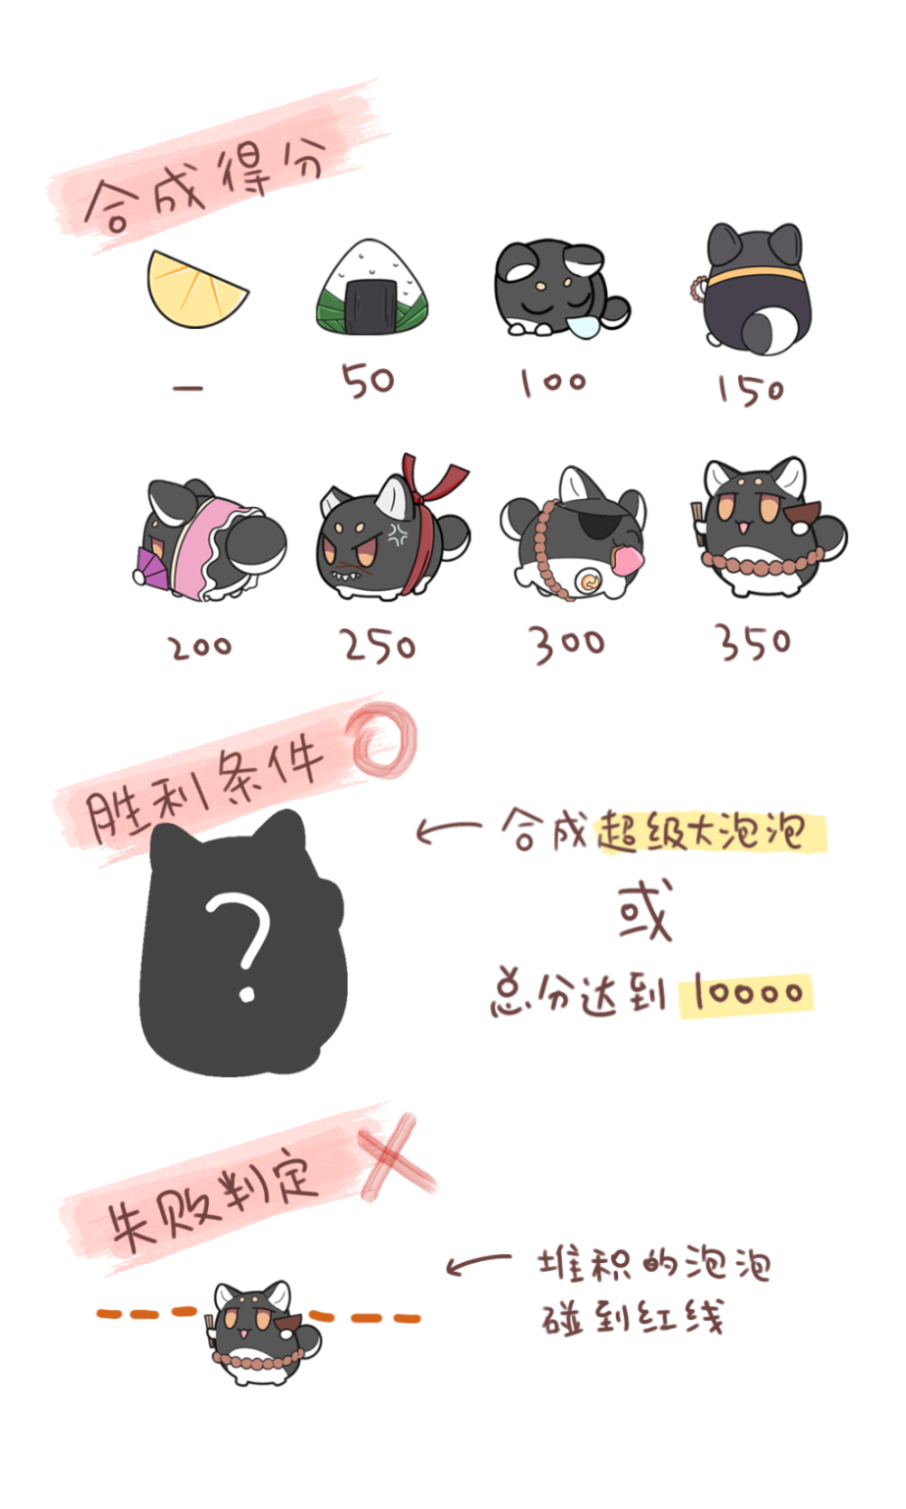 合成得分
—
50
100
150
200
250
300
350
胜利条件
?
合成超级大泡泡
或
总分达到 10000
失败判定
堆积的泡泡
碰到红线